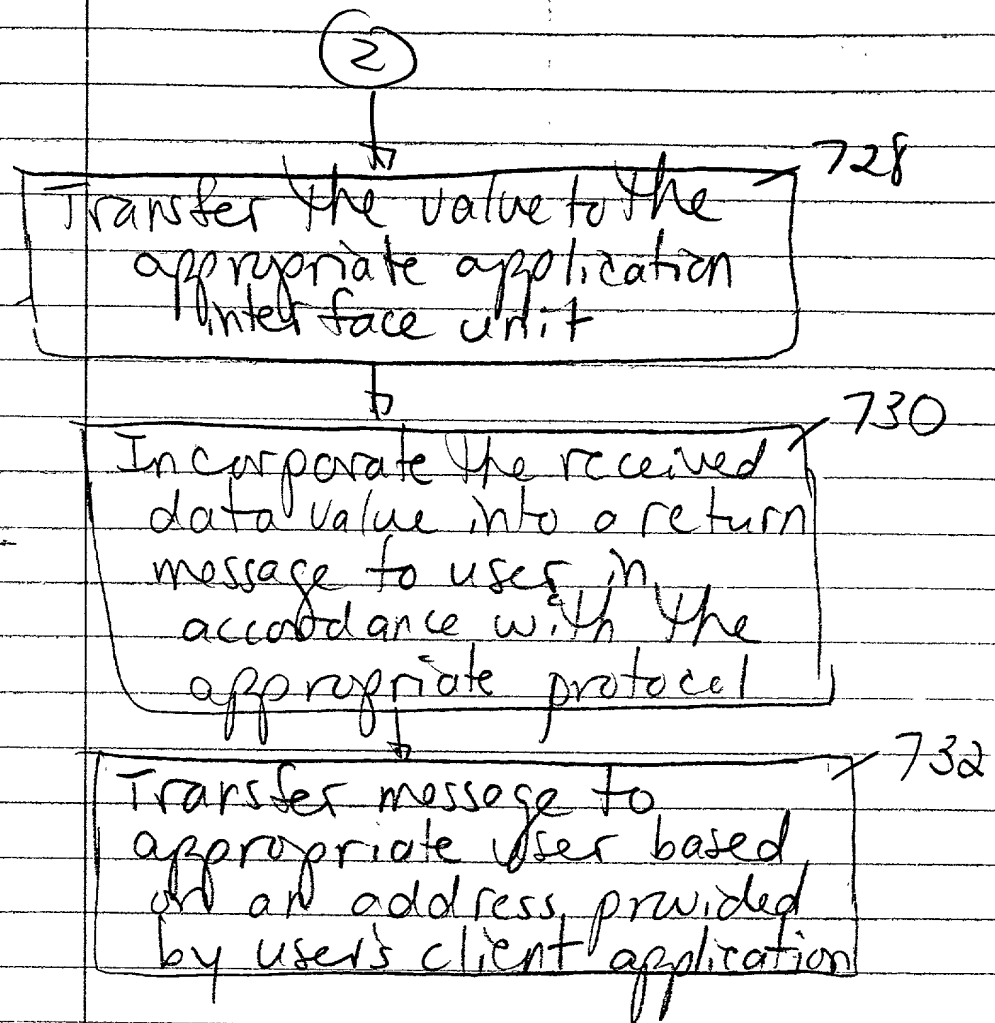 2
728
Transfer the value to the
appropriate application
interface unit
730
Incorporate the received
data value into a return
message to user in
accordance with the
appropriate protocol
732
Transfer message to
appropriate user based
on an address provided
by user's client application